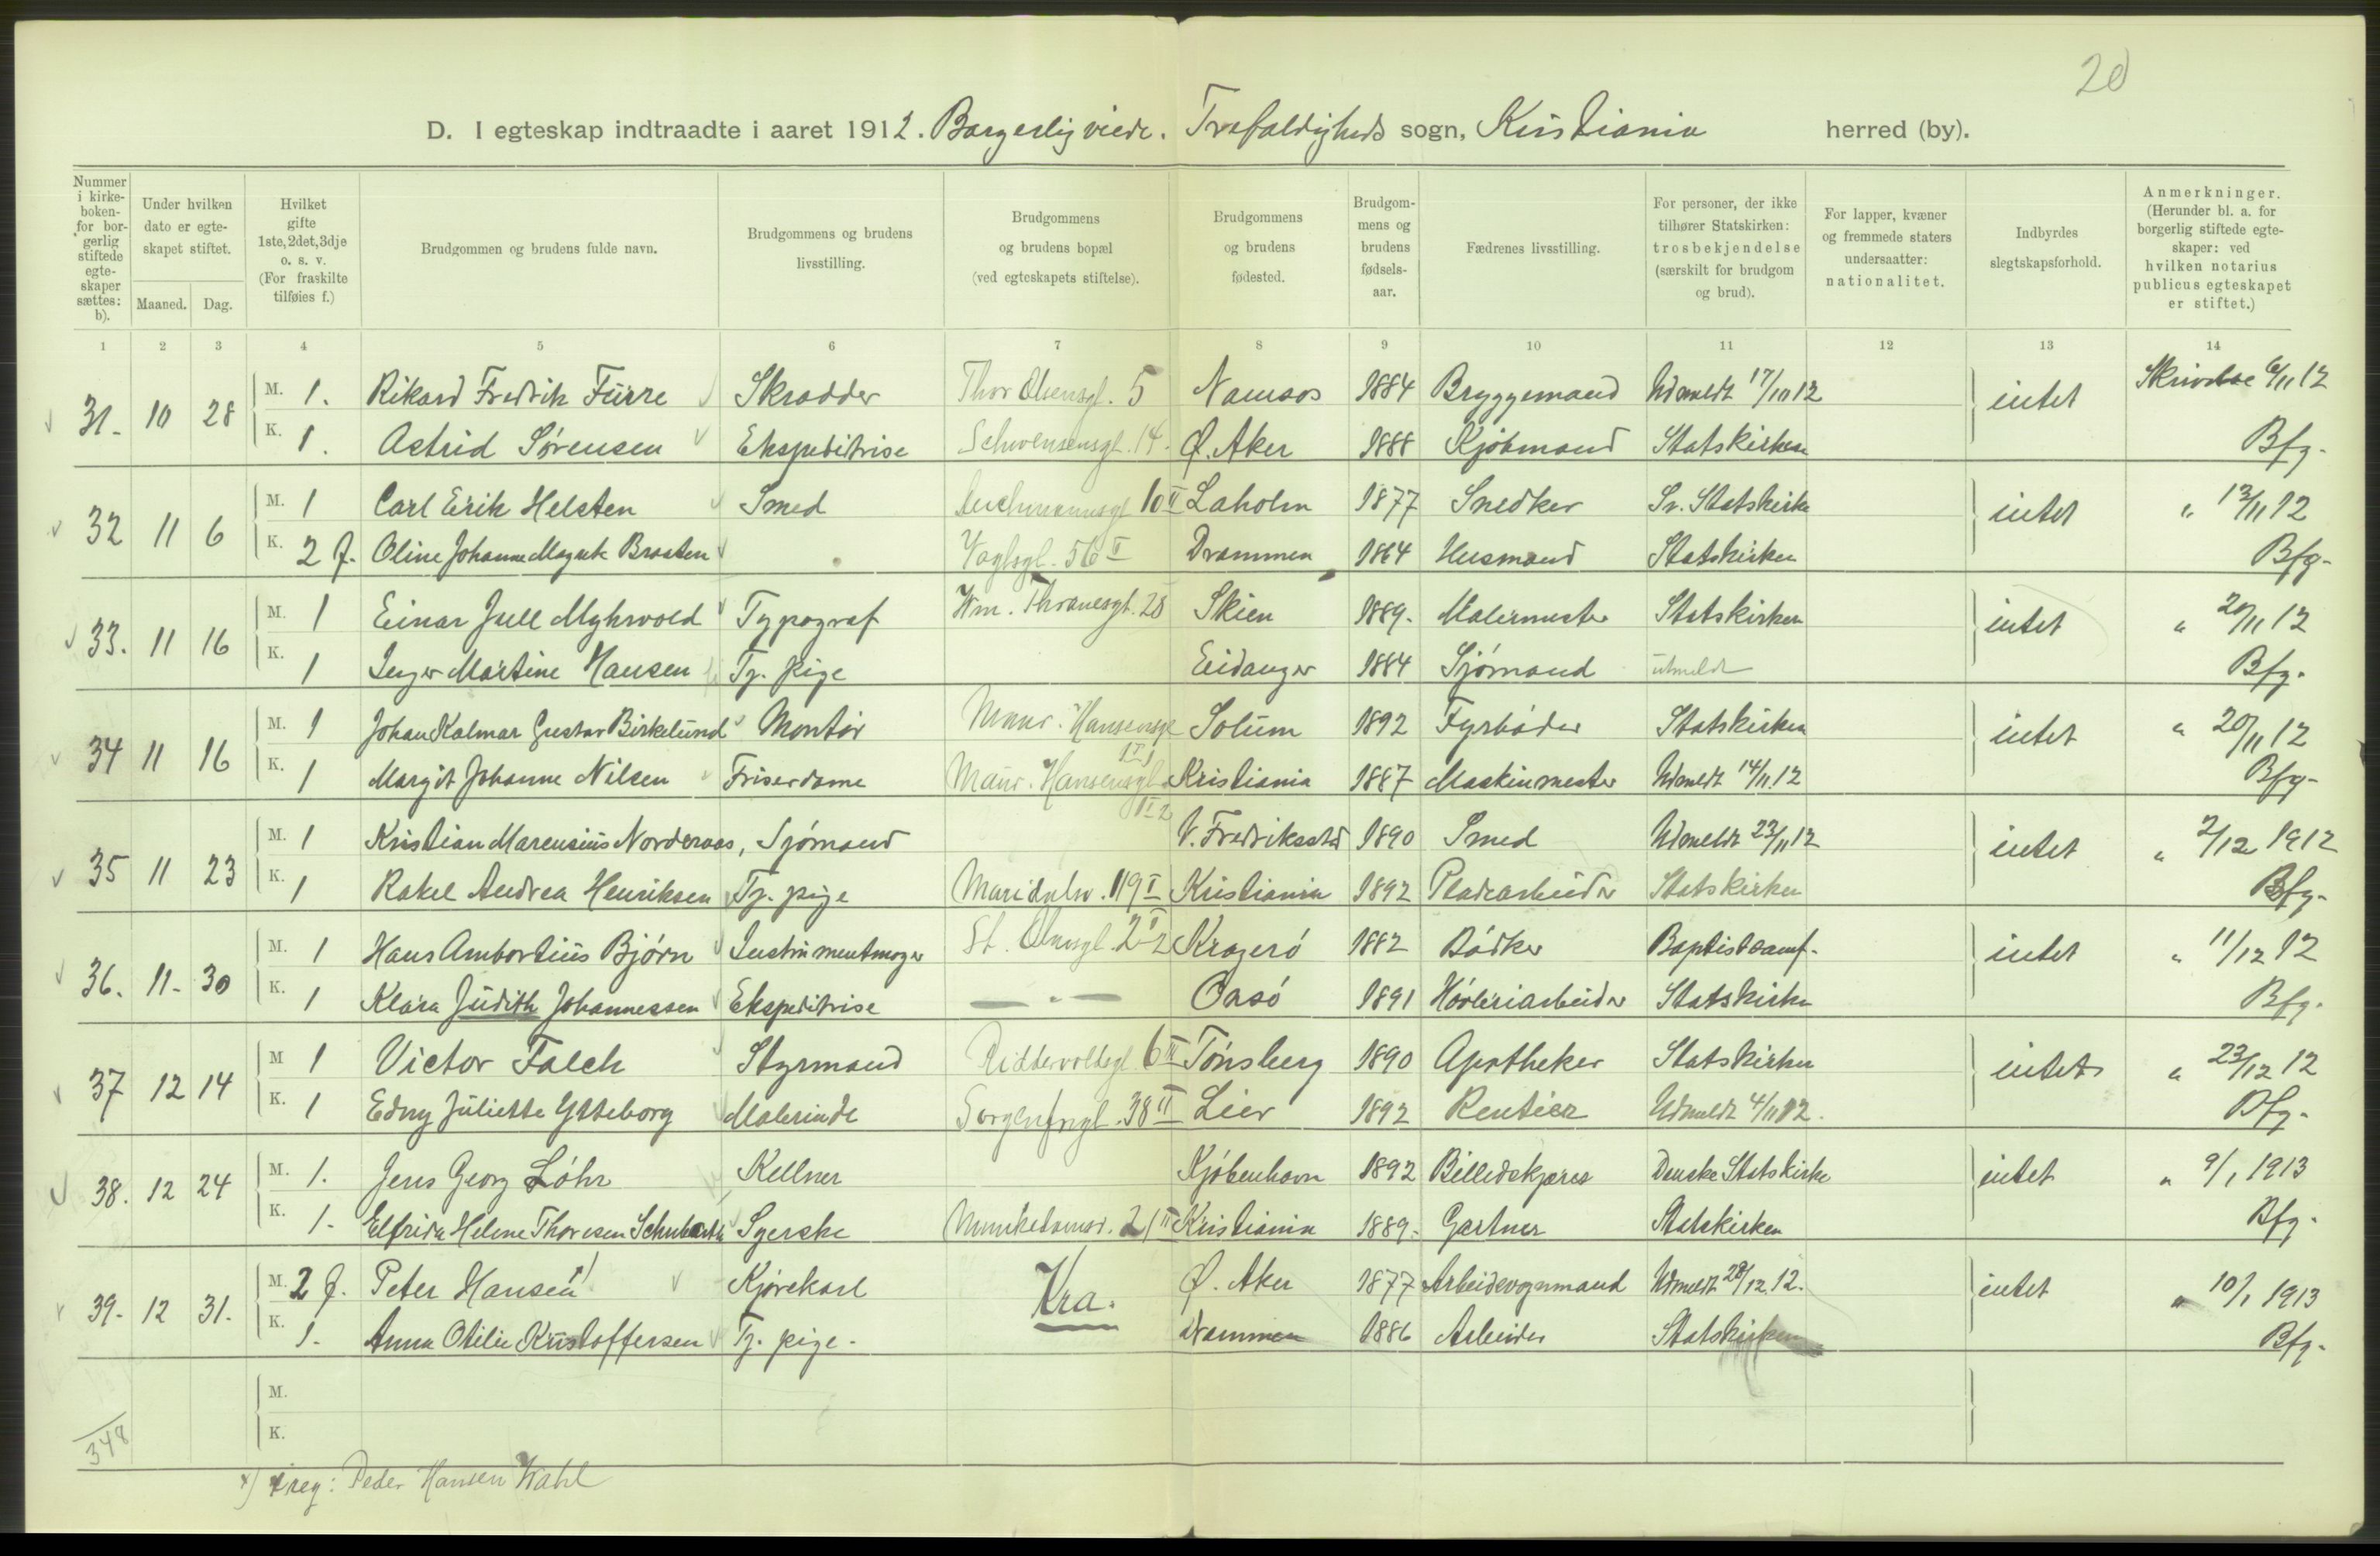 20
D. I egteskap indtraadte i aaret 1912. Borgerlig viede. Trefoldigheds sogn, Kristiania herred (by).
Nummer i kirke-boken- for bor-gerlig stiftede egte-skaper sættes: b).
Under hvilken dato er egte-skapet stiftet.
Maaned. Dag.
Hvilket gifte 1ste, 2det, 3dje o. s. v. (For fraskilte tilføies f.)
Brudgommen og brudens fulde navn.
Brudgommens og brudens livsstilling.
Brudgommens og brudens bopæl (ved egteskapets stiftelse).
Brudgommens og brudens fødested.
Brudgom-mens og brudens fødsels-aar.
Fædrenes livsstilling.
For personer, der ikke tilhører Statskirken: trosbekjendelse (særskilt for brudgom og brud).
For lapper, kvæner og fremmede staters undersaatter: nationalitet.
Indbyrdes slegtskapsforhold.
Anmerkninger. (Herunder bl. a. for borgerlig stiftede egte-skaper: ved hvilken notarius publicus egteskapet er stiftet.)
1 2 3 4 5 6 7 8 9 10 11 12 13 14
31. 10 28 M. 1. Rikard Fredrik Fürre Skrædder Thor Olsensgt. 5 Namsos 1884 Bryggemand Udmeldt 17/10 12 intet 6/11 12
K. 1. Astrid Sørensen Ekspeditrise Schwensensgt. 14. Ø. Aker 1888 Kjøbmand Statskirken Bfg.
32 11 6 M. 1 Carl Erik Helsten Smed 10 II Laholm 1877 Snedker Sv. Statskirke intet " 13/11 12
K. 2 f. Oline Johanne Magrete Braaten Vogtsgt. 56 II Drammen 1864 Husmand Statskirken Bfg.
33. 11 16 M. 1 Einar Juell Myhrvold Typograf Wm. Thranesgt. 28 Skien 1889. Malermester Statskirken intet " 20/11 12
K. 1 Inger Martine Hansen Tj. pige Eidanger 1884 Sjømand utmeldt Bfg.
34 11 16 M. 1 Johan Kalmar Gustav Birkelund Montør Maur. Hansensgt. II Solum 1892 Fyrbøder Statskirken intet " 20/11 12
K. 1 Margit Johanne Nilsen Friserdame Maur. Hansensgt. 2 II Kristiania 1887 Maskinmester Udmeldt 14/11. 12 Bfg.
35 11 23 M. 1 Kristian Marensius Norderaas, Sjømand V. Fredrikstad 1890 Smed Udmeldt 23/11 12 intet " 2/12 1912
K. 1 Rakel Andrea Henriksen Tj. pige Maridalsv. 119 I Kristiania 1892 Pladearbeider Statskirken Bfg.
36. 11. 30 M. 1 Hans Ambortius Bjørn Instrumentmager St. Olavsgt. 2 Kragerø 1882 Bødker Baptistsamf. intet " 11/12 12
K. 1 Klara Judith Johannessen Ekspeditrise — " — Onsø 1891 Høvleriarbeider Statskirken Bfg.
37 12 14 M 1 Victor Falch Styrmand Riddervoldsgt. 6 III Tønsberg 1890 Apotheker Statskirken intet " 23/12 12
K. 1 Edny Juliette Ytteborg Malerinde Sorgenfrigt. 38 II Lier 1892 Rentier Udmeldt 4/11 12. Bfg.
38. 12 24 M. 1. Jens Georg Löhr Kellner Kjøbenhavn 1892 Billedskjærer Danske Statskirke intet " 9/1 1913
K. 1. Elfrida Helene Thoresen Schubarth Syerske Munkedamsv. 21 III Kristiania 1889. Gartner Statskirken Bfg.
39. 12 31. M. 2 f. Peter Hansen x) Kjørekarl Kra. Ø. Aker 1877 Arbeidsvognmand Udmeldt 28/12 12. intet " 10/1 1913
K. 1. Anna Otilie Kristoffersen Tj. pige. Drammen 1886 Arbeider Statskirken Bfg.
M.
K.
348
x) reg: Peder Hansen Wahl